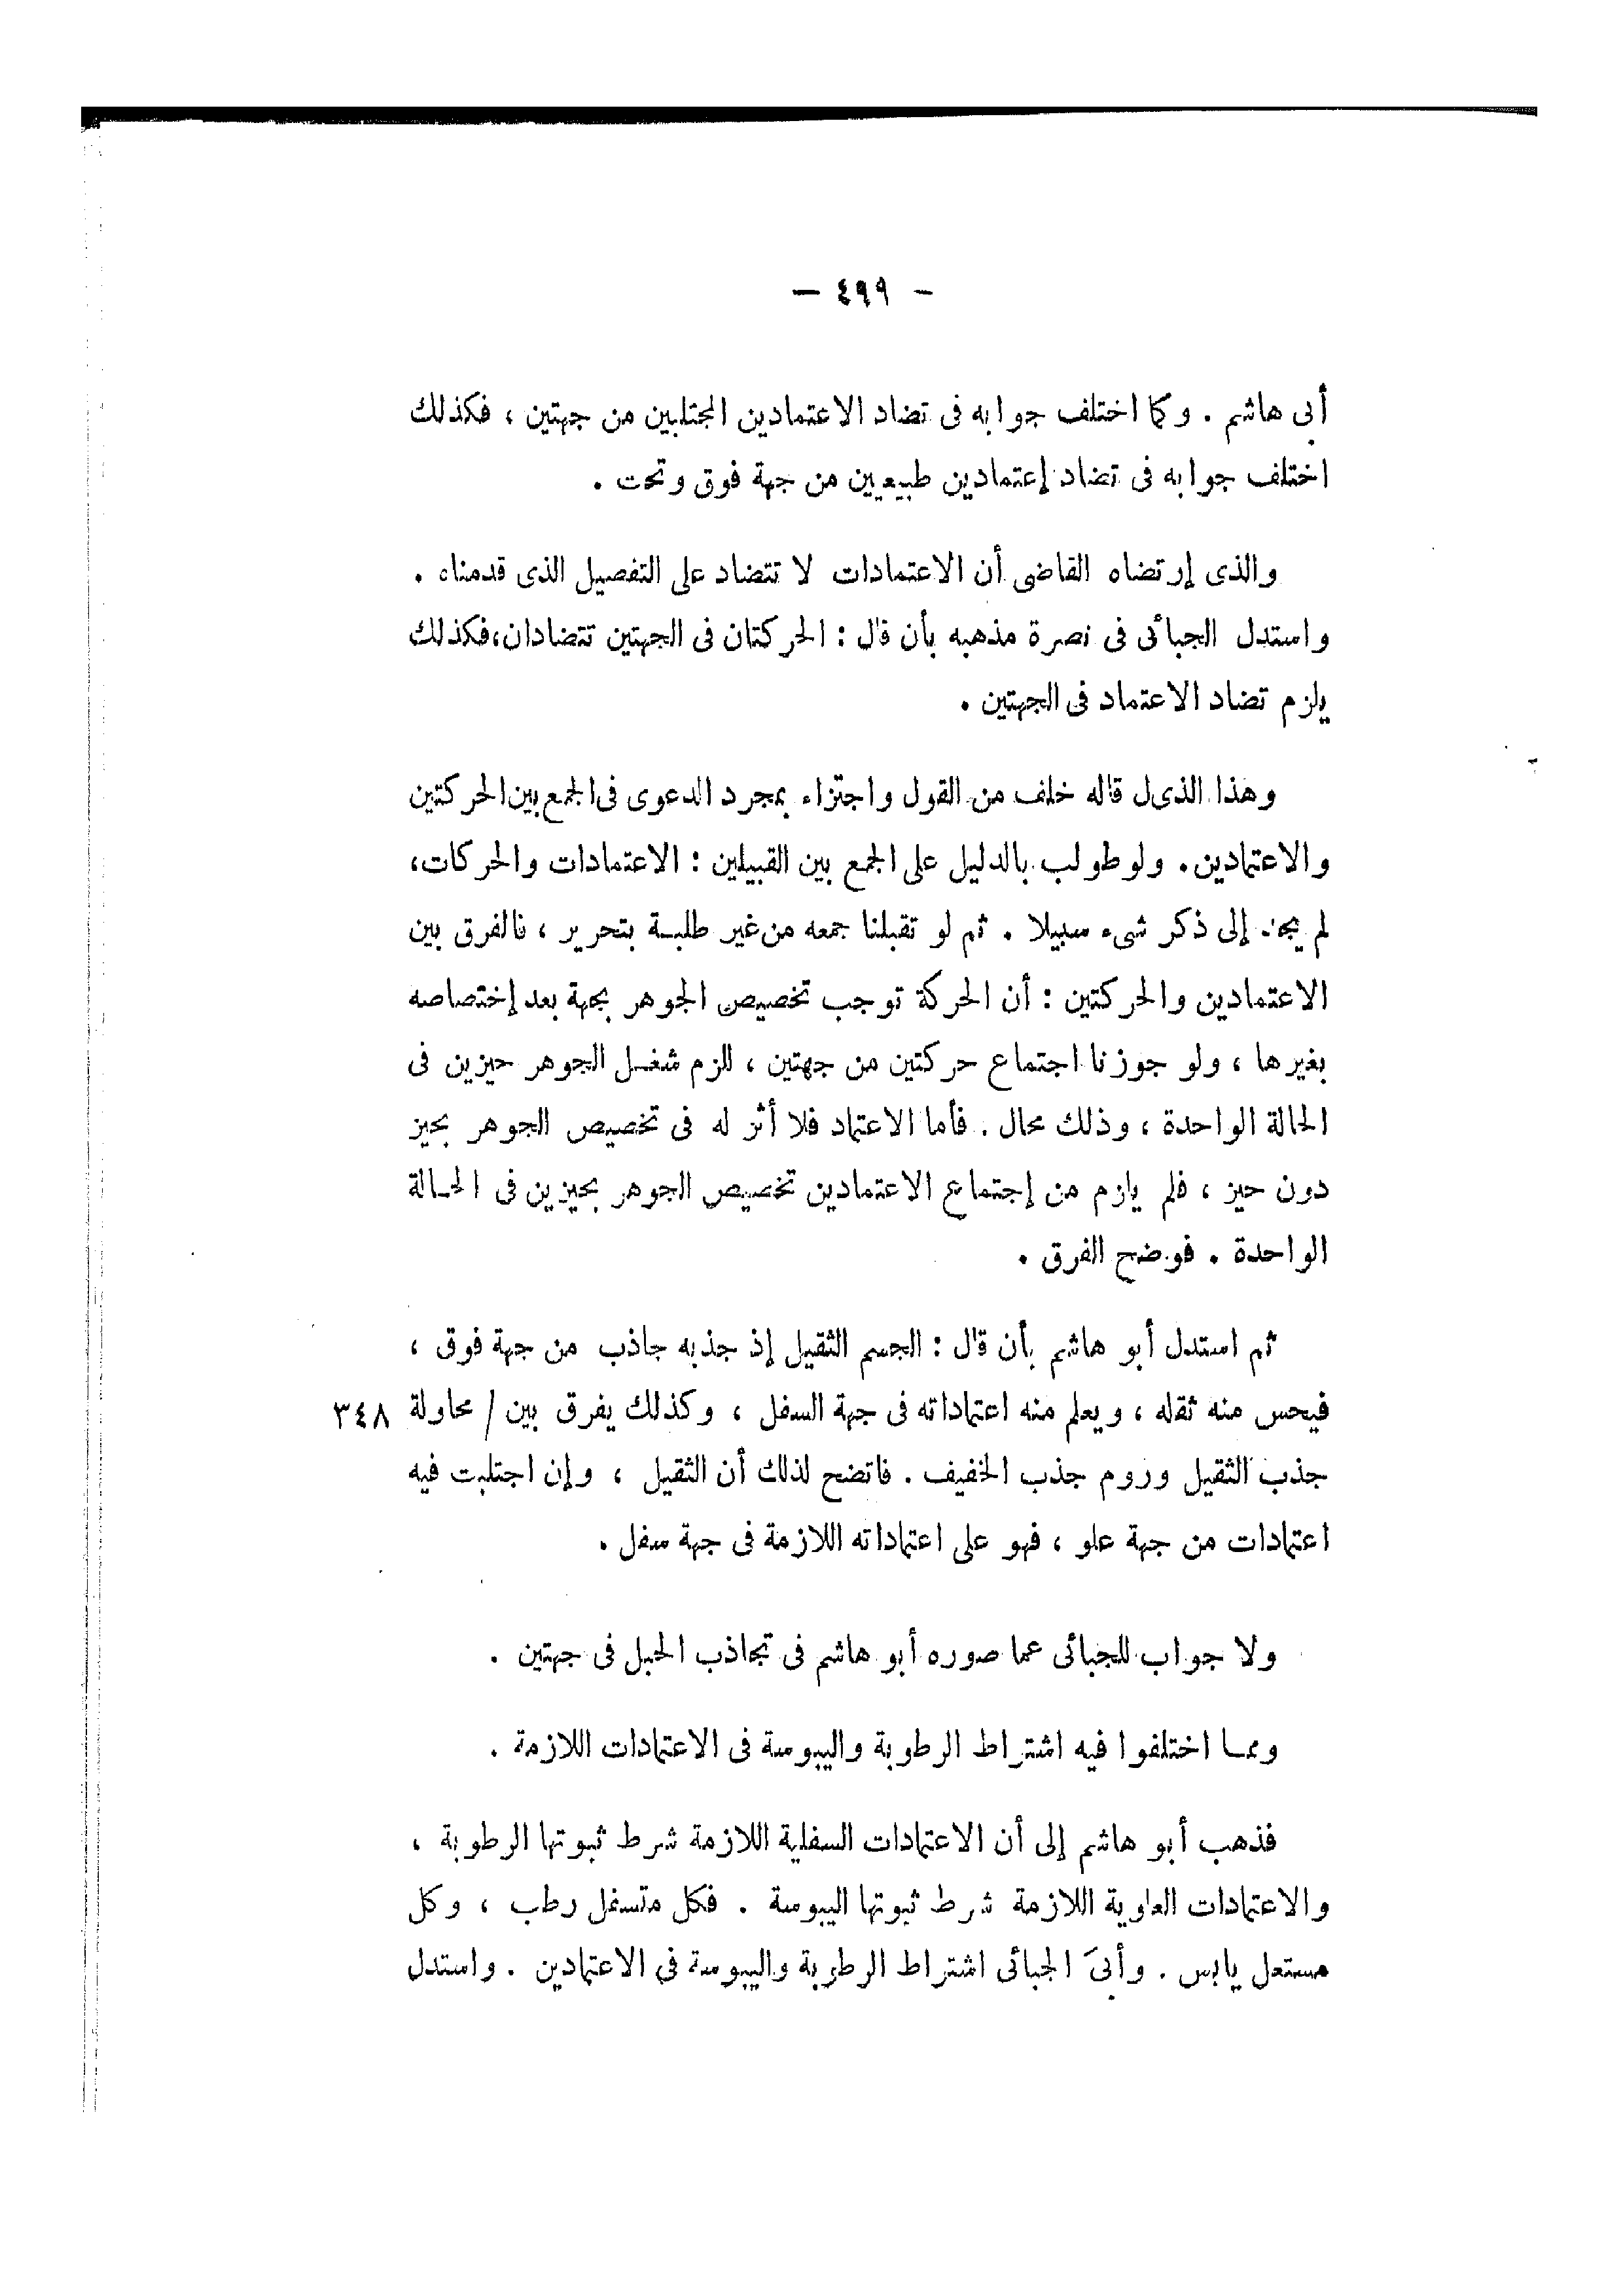 — ٤٩٩ —
أبى هاشم . وكما اختلف جوابه فى تضاد الاعتمادين المجتلبين من جهتين ، فكذلك
اختلف جوابه فى تضاد إعتمادين طبيعيين من جهة فوق وتحت .
والذى إرتضاه القاضى أن الاعتمادات لا تتضاد على التفصيل الذى قدمناه .
واستدل الجبائى فى نصرة مذهبه بأن قال : الحركتان فى الجهتين تتضادان، فكذلك
يلزم تضاد الاعتماد فى الجهتين .
وهذا الذىل قاله خلف من القول واجتزاء بمجرد الدعوى فى الجمع بين الحركتين
والاعتمادين. ولو طولب بالدليل على الجمع بين القبيلين : الاعتمادات والحركات،
لم يجد إلى ذكر شىء سبيلا . ثم لو تقبلنا جمعه من غير طلبة بتحرير ، فالفرق بين
الاعتمادين والحركتين : أن الحركة توجب تخصيص الجوهر بجهة بعد إختصاصه
بغيرها ، ولو جوزنا اجتماع حركتين من جهتين ، للزم شغل الجوهر حيزين فى
الحالة الواحدة ، وذلك محال . فأما الاعتماد فلا أثر له فى تخصيص الجوهر بحيز
دون حيز ، فلم يلزم من إجتماع الاعتمادين تخصيص الجوهر بحيزين فى الحالة
الواحدة . فوضح الفرق .
ثم استدل أبو هاشم بأن قال : الجسم الثقيل إذ جذبه جاذب من جهة فوق ،
فيحس منه ثقله ، ويعلم منه اعتماداته فى جهة السفل ، وكذلك يفرق بين / محاولة ٣٤٨
جذب الثقيل وروم جذب الخفيف . فاتضح لذلك أن الثقيل ، وإن اجتلبت فيه
اعتمادات من جهة علو ، فهو على اعتماداته اللازمة فى جهة سفل .
ولا جواب للجبائى عما صوره أبو هاشم فى تجاذب الحبل فى جهتين .
ومما اختلفوا فيه اشتراط الرطوبة واليبوسة فى الاعتمادات اللازمة .
فذهب أبو هاشم إلى أن الاعتمادات السفلية اللازمة شرط ثبوتها الرطوبة ،
والاعتمادات العلوية اللازمة شرط ثبوتها اليبوسة . فكل متسفل رطب ، وكل
مستعل يابس . وأبىَ الجبائى اشتراط الرطوبة واليبوسة فى الاعتمادين . واستدل